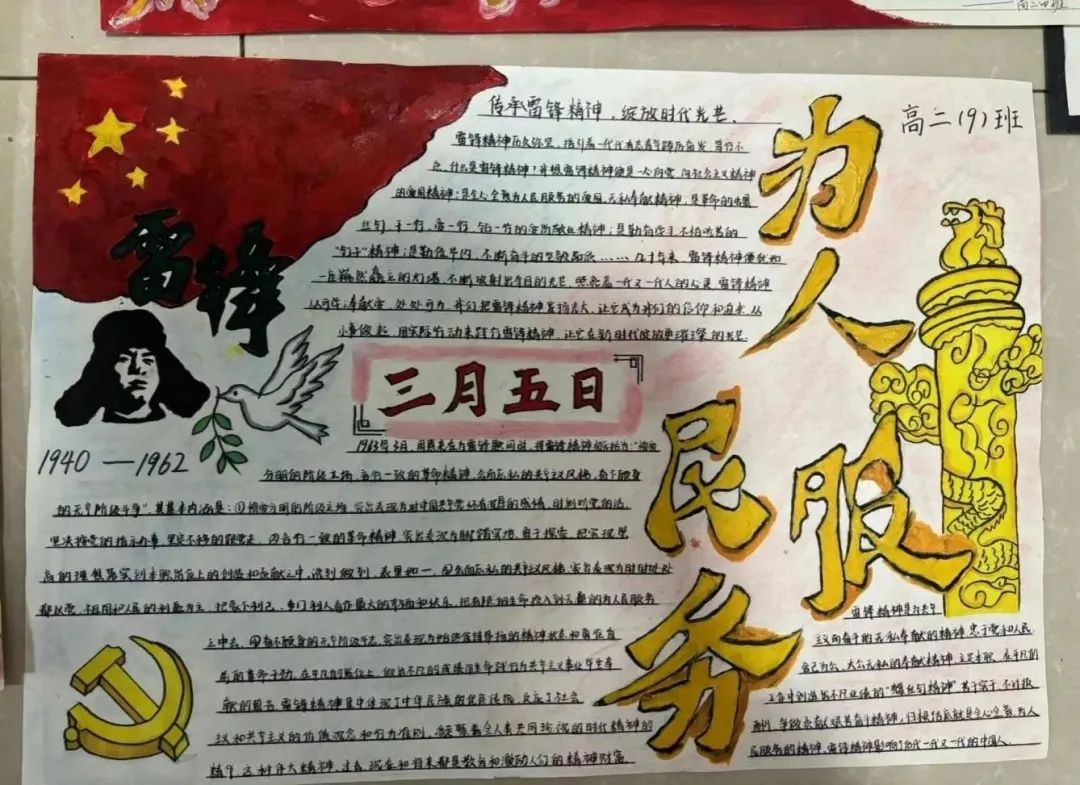 高二四班
高二(9)班
传承雷锋精神，绽放时代光芒、
雷锋精神历久弥坚，指引着一代代有志青年踔厉奋发、笃行不
怠、什么是雷锋精神？我想雷锋精神便是一心向党、向社会主义精神
的爱国精神；是全心全意为人民服务的爱国、无私奉献精神；是革命的螺
丝钉，干一行，爱一行，钻一行的爱岗敬业精神；是勤奋学习不怕吃苦的
"钉子"精神；是勤俭节约，不断奋斗的坚毅品质……几十年来，雷锋精神便犹如
一座巍然矗立的灯塔，不断放射出夺目的光芒，照亮着一代又一代人的心灵，雷锋精神
人人可学；奉献爱心，处处可为，我们把雷锋精神发扬光大，让它成为我们的信仰和追求，从
小事做起，用实际行动来践行雷锋精神，让它在新时代绽放更璀璨的光芒.
雷锋
1940 — 1962
三月五日
为人民服务
1963年3月，周恩来在为雷锋题词时，把雷锋精神概括为："憎爱
分明的阶级立场、言行一致的革命精神、公而忘私的共产主义风格、奋不顾身
的无产阶级斗争"其基本内涵是：①憎爱分明的阶级立场，突出表现为对中国共产党怀有深厚的感情，时刻听党的话，
坚决按党的指示办事，坚定不移的跟党走，②言行一致的革命精神，突出表现为脚踏实地，勇于探索，把实现崇
高的理想落实到本职岗位上的创造和贡献之中，说到做到，表里如一，③公而忘私的共产主义风格，突出表现为时时处处
都以党、祖国和人民的利益为主，把毫不利己、专门利人看作最大的幸福和快乐，把有限的生命投入到无限的为人民服务
之中去，④奋不顾身的无产阶级斗志，突出表现为始终保持昂扬的精神状态和奋发有
为的革命干劲，在平凡的岗位上，做出不凡的成绩用生命践行为共产主义事业毕生奉
献的誓言，雷锋精神集中体现了中华民族的优良传统，反应了社会
主义和共产主义的价值观念和行为准则，凝聚着全人类共同珍视的时代精神的
精华，这种伟大精神，过去、现在和将来都是教育和激励人们的精神财富
雷锋精神是为共产
主义而奋斗的无私奉献的精神，忠于党和人民、
舍己为公、大公无私的奉献精神，立足本职、在平凡的
工作中创造出不凡业绩的"螺丝钉精神"，苦干实干、不计报
酬、争做贡献艰苦奋斗精神，归根结底就是全心全意为人
民服务的精神，雷锋精神影响了后代一代又一代的中国人.